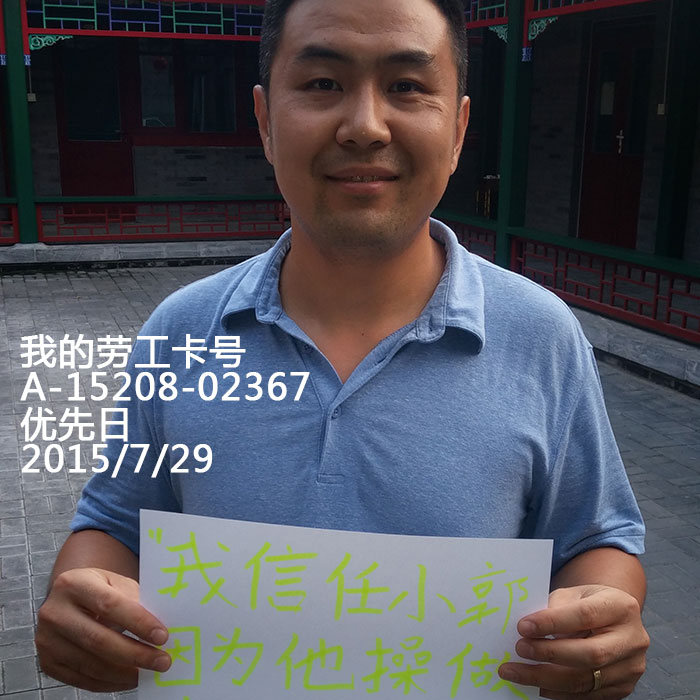 我的劳工卡号
A-15208-02367
优先日
2015/7/29
"我信任小郭
因为他操做